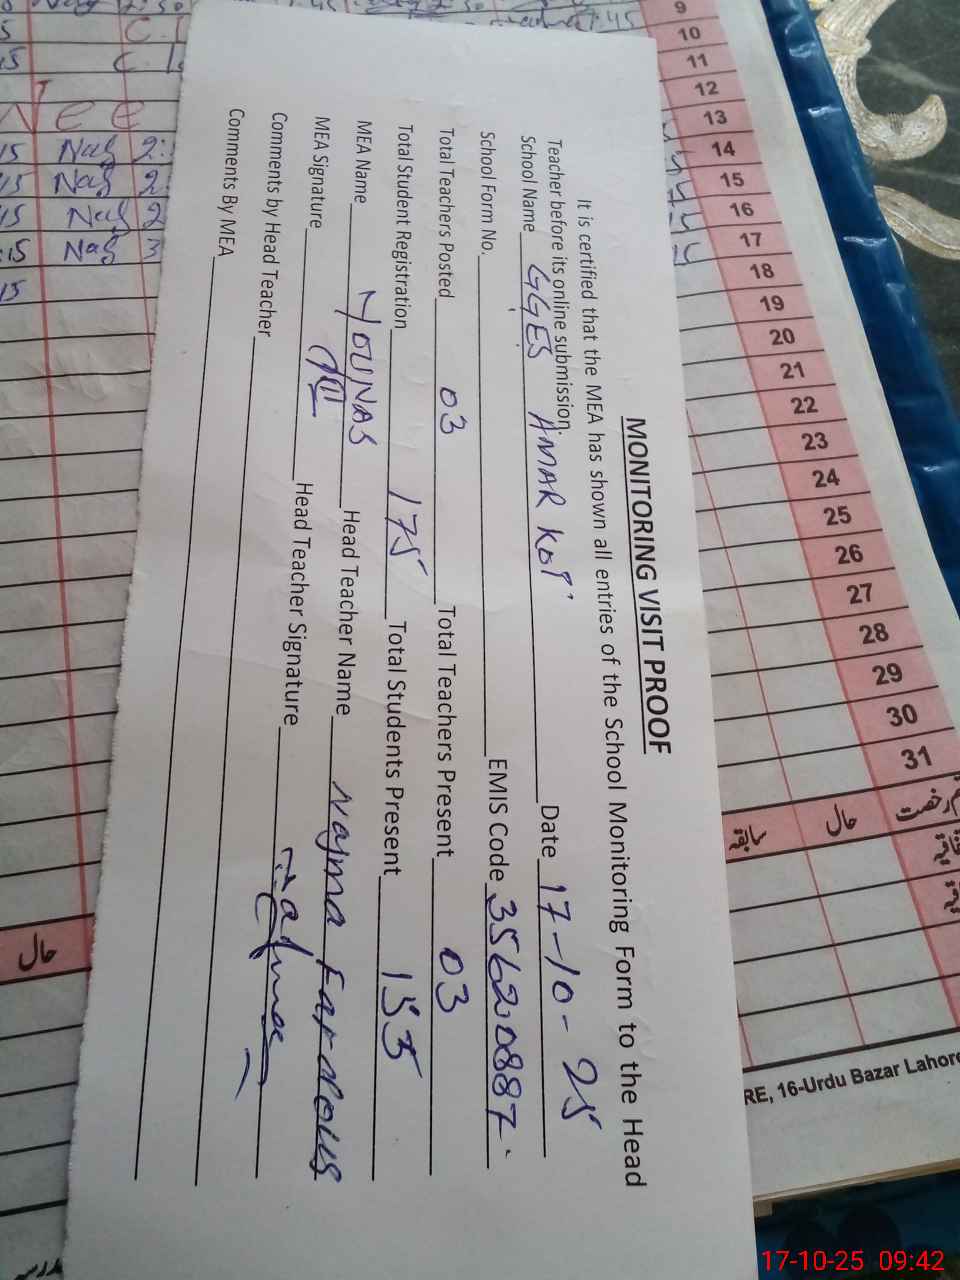 MONITORING VISIT PROOF
It is certified that the MEA has shown all entries of the School Monitoring Form to the Head
Teacher before its online submission.
School Name GGES AMAR KOT Date 17-10-25
School Form No. EMIS Code 35620887
Total Teachers Posted 03 Total Teachers Present 03
Total Student Registration 175 Total Students Present 155
MEA Name YOUNAS Head Teacher Name Najma Fardous
MEA Signature Head Teacher Signature Najma
Comments by Head Teacher
Comments By MEA
9
10
11
12
13
14
15
16
17
18
19
20
21
22
23
24
25
26
27
28
29
30
31
رخصت
حال
سابقہ
حال
RE, 16-Urdu Bazar Lahore
C.L
Nag 2:
Nag 2
Nag 2
Nag 3
17-10-25 09:42